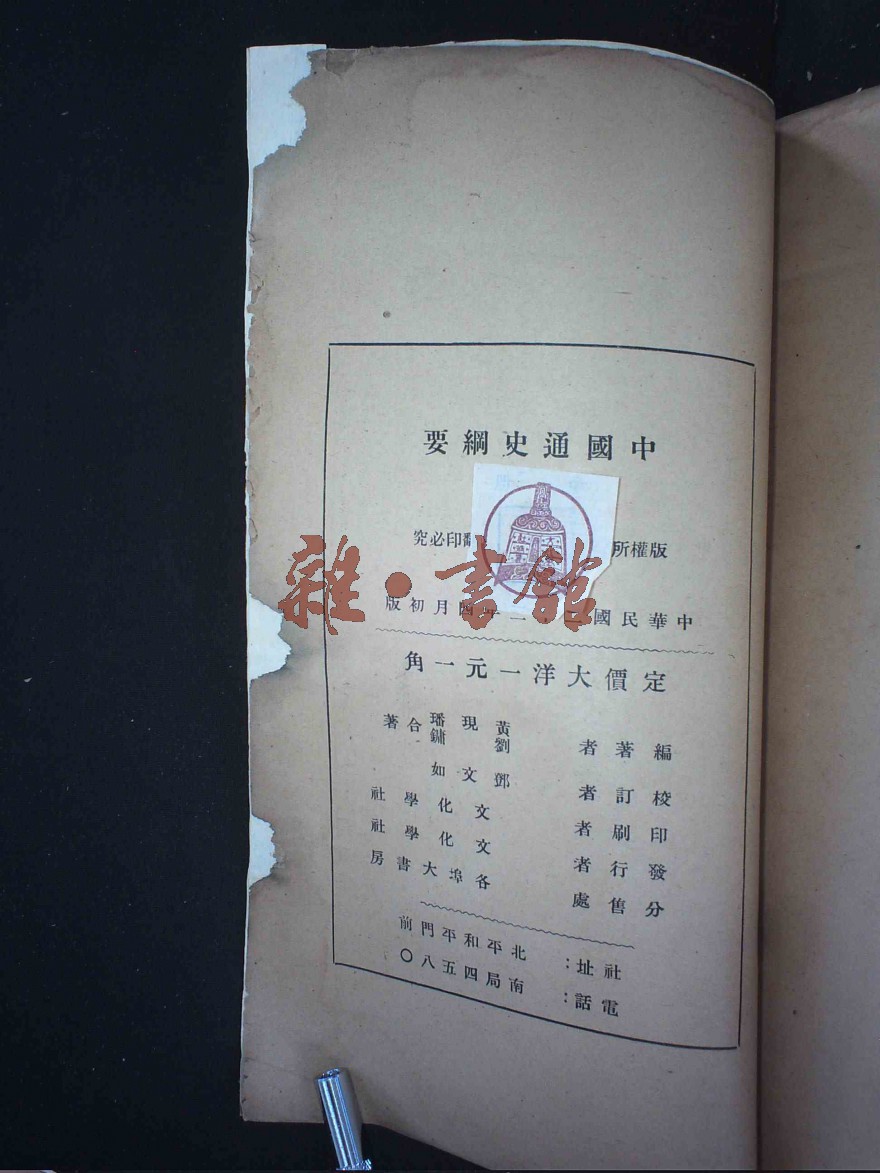 中國通史綱要
版權所 翻印必究
中華民國二十二年四月初版
定價大洋一元一角
編著者 黃現璠 劉鏞 合著
校訂者 鄧文如
印刷者 文化學社
發行者 文化學社
分售處 各埠大書房
社址：北平和平門前
電話：南局四五八〇
雜·書館